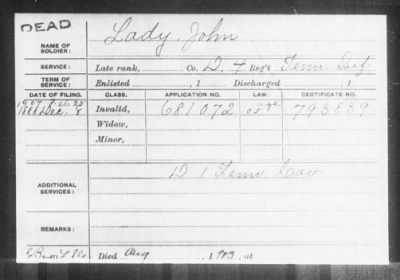 DEAD
NAME OF SOLDIER: Lady, John
SERVICE: Late rank, Co. D, 4 Reg't Tenn. Inf
TERM OF SERVICE: Enlisted , 1 Discharged , 1
DATE OF FILING. CLASS. APPLICATION NO. LAW. CERTIFICATE NO.
Dec. 8 Invalid, 681072 793839
Widow,
Minor,
ADDITIONAL SERVICES: D 1 Tenn Cav
REMARKS:
Died Aug , 1 at